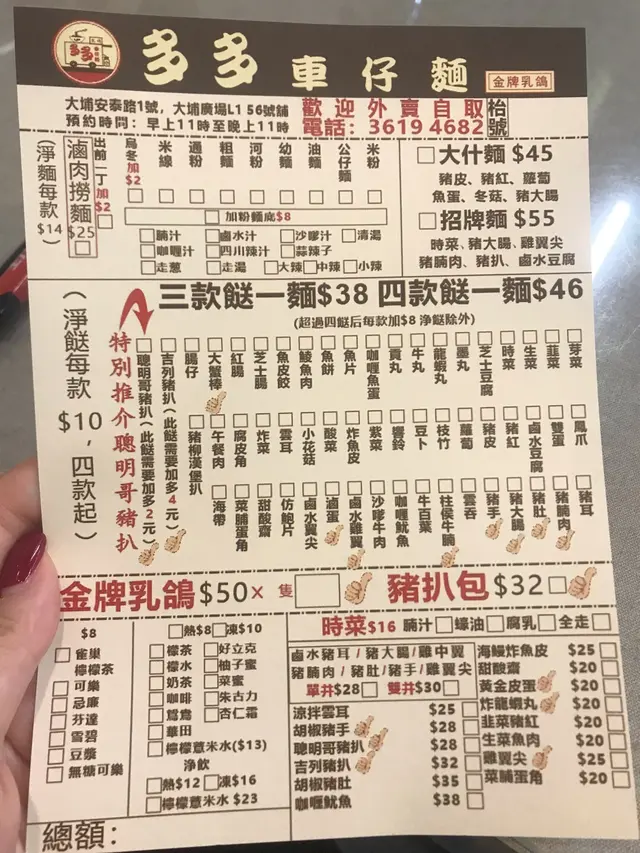 多多
多多車仔麵
金牌乳鴿
大埔安泰路1號，大埔廣場L1 56號舖
預約時間：早上11時至晚上11時
歡迎外賣自取
電話：3619 4682
枱號
(淨麵每款$14)
滷肉撈麵$25
出前一丁加$2
烏冬加$2
米線
通粉
粗麵
河粉
幼麵
油麵
公仔麵
米粉
加粉麵底$8
腩汁 鹵水汁 沙嗲汁 清湯
咖喱汁 四川辣汁 蒜辣子
走蔥 走湯 大辣 中辣 小辣
大什麵 $45
豬皮、豬紅、蘿蔔
魚蛋、冬菇、豬大腸
招牌麵 $55
時菜、豬大腸、雞翼尖
豬腩肉、豬扒、鹵水豆腐
三款餸一麵$38 四款餸一麵$46
(超過四餸后每款加$8 淨餸除外)
(淨餸每款$10，四款起)
特別推介聰明哥豬扒
聰明哥豬扒(此餸需要加多2元)
吉列豬扒(此餸需要加多4元)
腸仔
大蟹棒
紅腸
芝士腸
魚皮餃
鯪魚肉
魚餅
魚片
咖喱魚蛋
貢丸
牛丸
龍蝦丸
墨丸
芝士豆腐
時菜
生菜
韭菜
芽菜
豬柳漢堡扒
午餐肉
腐皮角
炸菜
雲耳
小花菇
酸菜
炸魚皮
紫菜
響鈴
豆卜
枝竹
蘿蔔
豬皮
豬紅
鹵水豆腐
雙蛋
鳳爪
海帶
菜脯蛋角
甜酸齋
仿鮑片
鹵水翼尖
滷蛋
鹵水雞翼
沙嗲牛肉
咖喱魷魚
牛百葉
柱侯牛腩
雲吞
豬手
豬大腸
豬肚
豬腩肉
豬耳
金牌乳鴿$50× 隻
豬扒包$32
$8
雀巢檸檬茶
可樂
忌廉
芬達
雪碧
豆漿
無糖可樂
熱$8 凍$10
檸茶 好立克
檸水 柚子蜜
奶茶 菜蜜
咖啡 朱古力
鴛鴦 杏仁霜
華田
檸檬薏米水($13)
淨飲
熱$12 凍$16
檸檬薏米水 $23
時菜$16 腩汁 蠔油 腐乳 全走
鹵水豬耳/豬大腸/雞中翼
豬腩肉/豬肚/豬手/雞翼尖
單拼$28 雙拼$30
涼拌雲耳 $25
胡椒豬手 $28
聰明哥豬扒 $28
吉列豬扒 $32
胡椒豬肚 $35
咖喱魷魚 $38
海鰻炸魚皮 $25
甜酸齋 $20
黃金皮蛋 $20
炸龍蝦丸 $20
韭菜豬紅 $20
生菜魚肉 $20
雞翼尖 $25
菜脯蛋角 $20
總額：